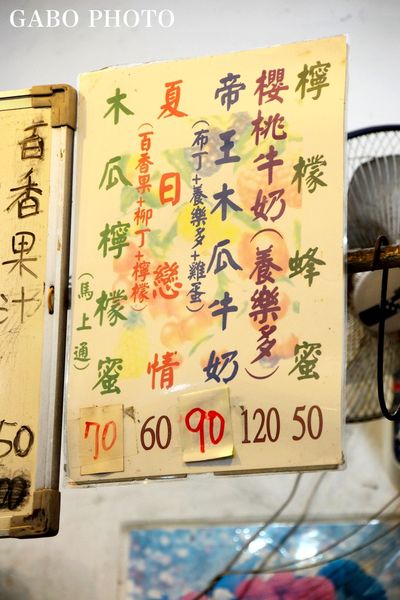 GABO PHOTO
檸檬蜂蜜
50
櫻桃牛奶(養樂多)
120
帝王木瓜牛奶
(布丁+養樂多+雞蛋)
90
夏日戀情
(百香果+柳丁+檸檬)
60
木瓜檸檬蜜
(馬上通)
70
百香果汁
50